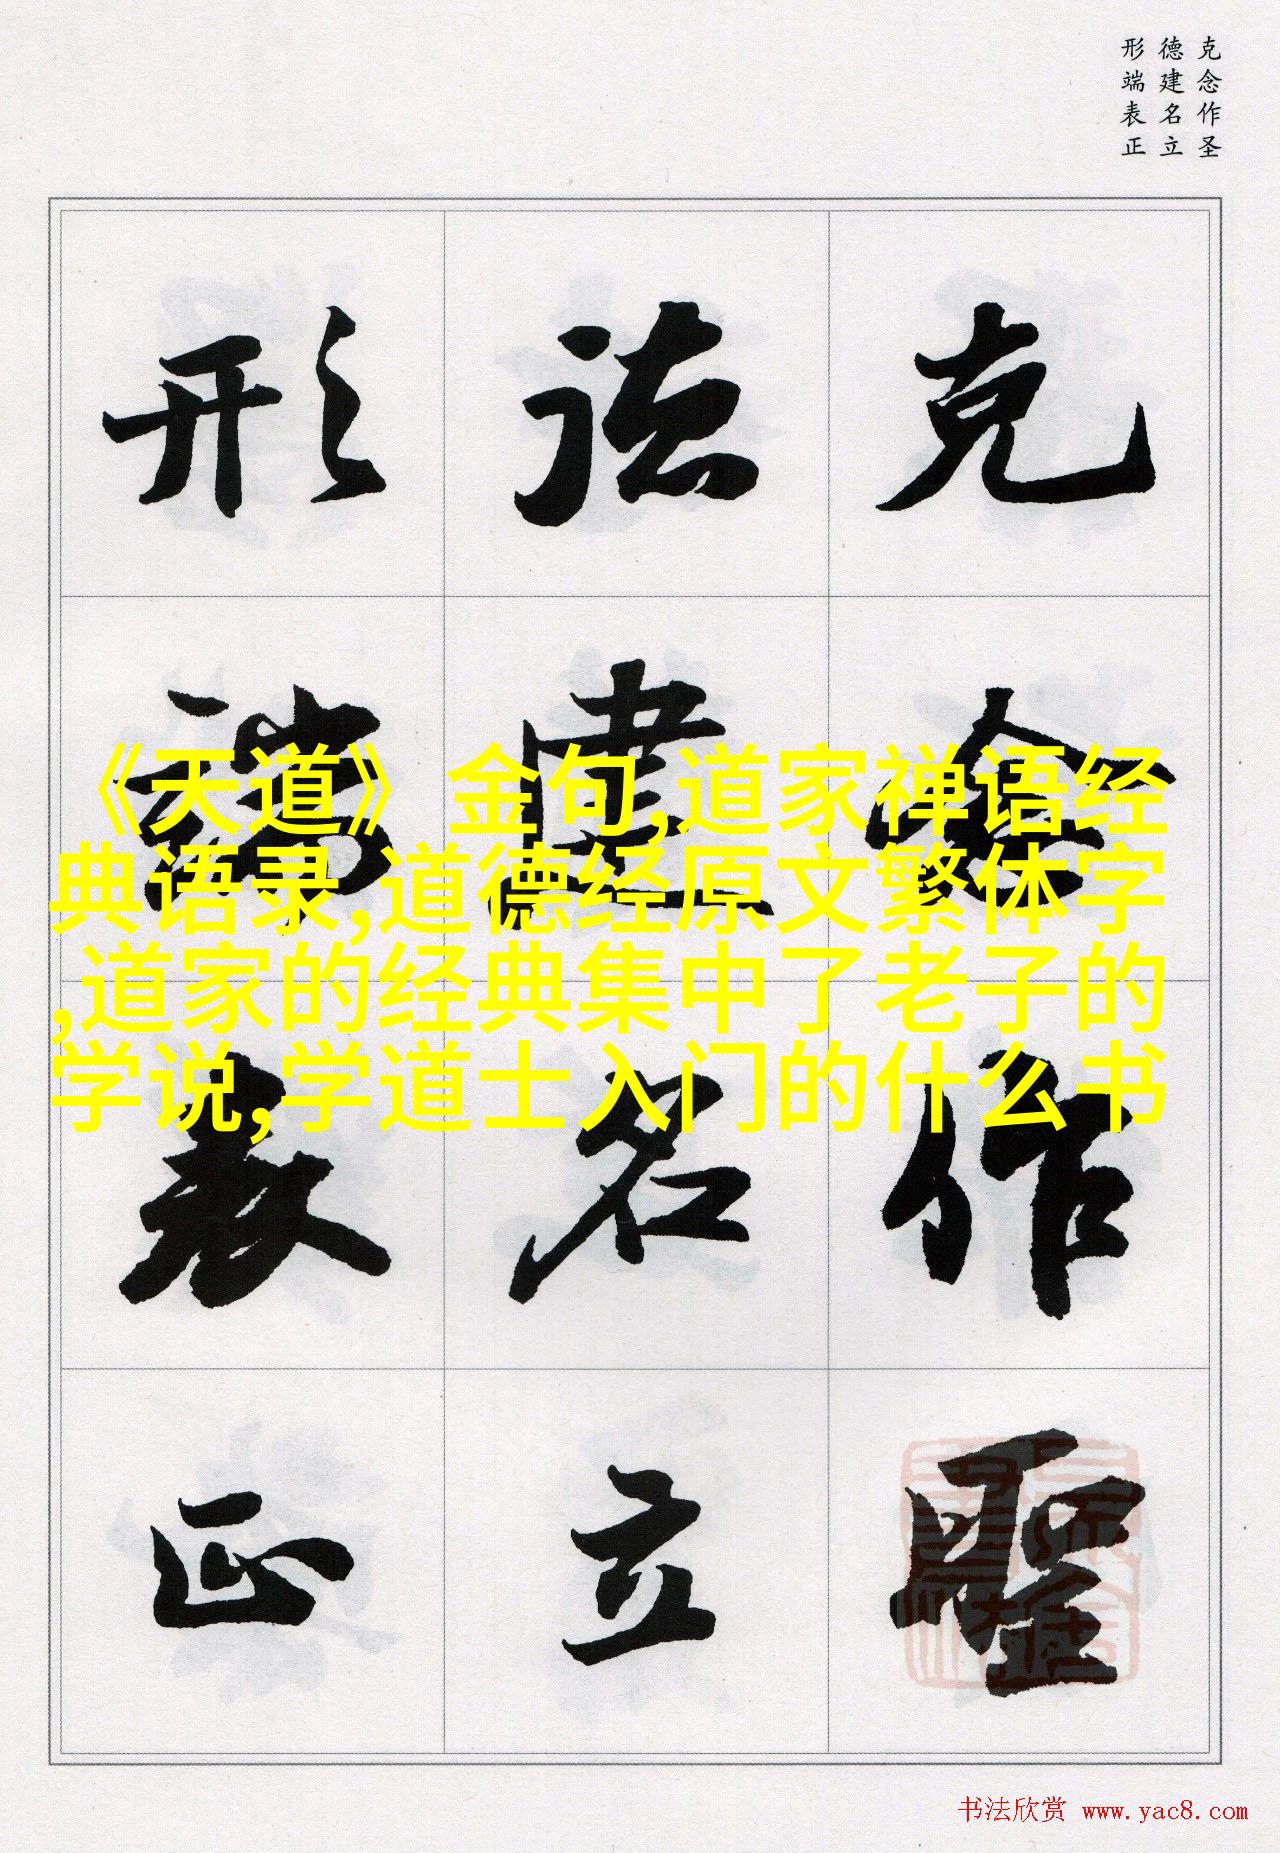 克念作圣
德建名立
形端表正
克念作聖
德建名立
形端表正
《天道》金句,道家禅语经
典语录,道德经原文繁体字
,道家的经典集中了老子的
学说,学道士入门的什么书
书法欣赏 www.yac8.com